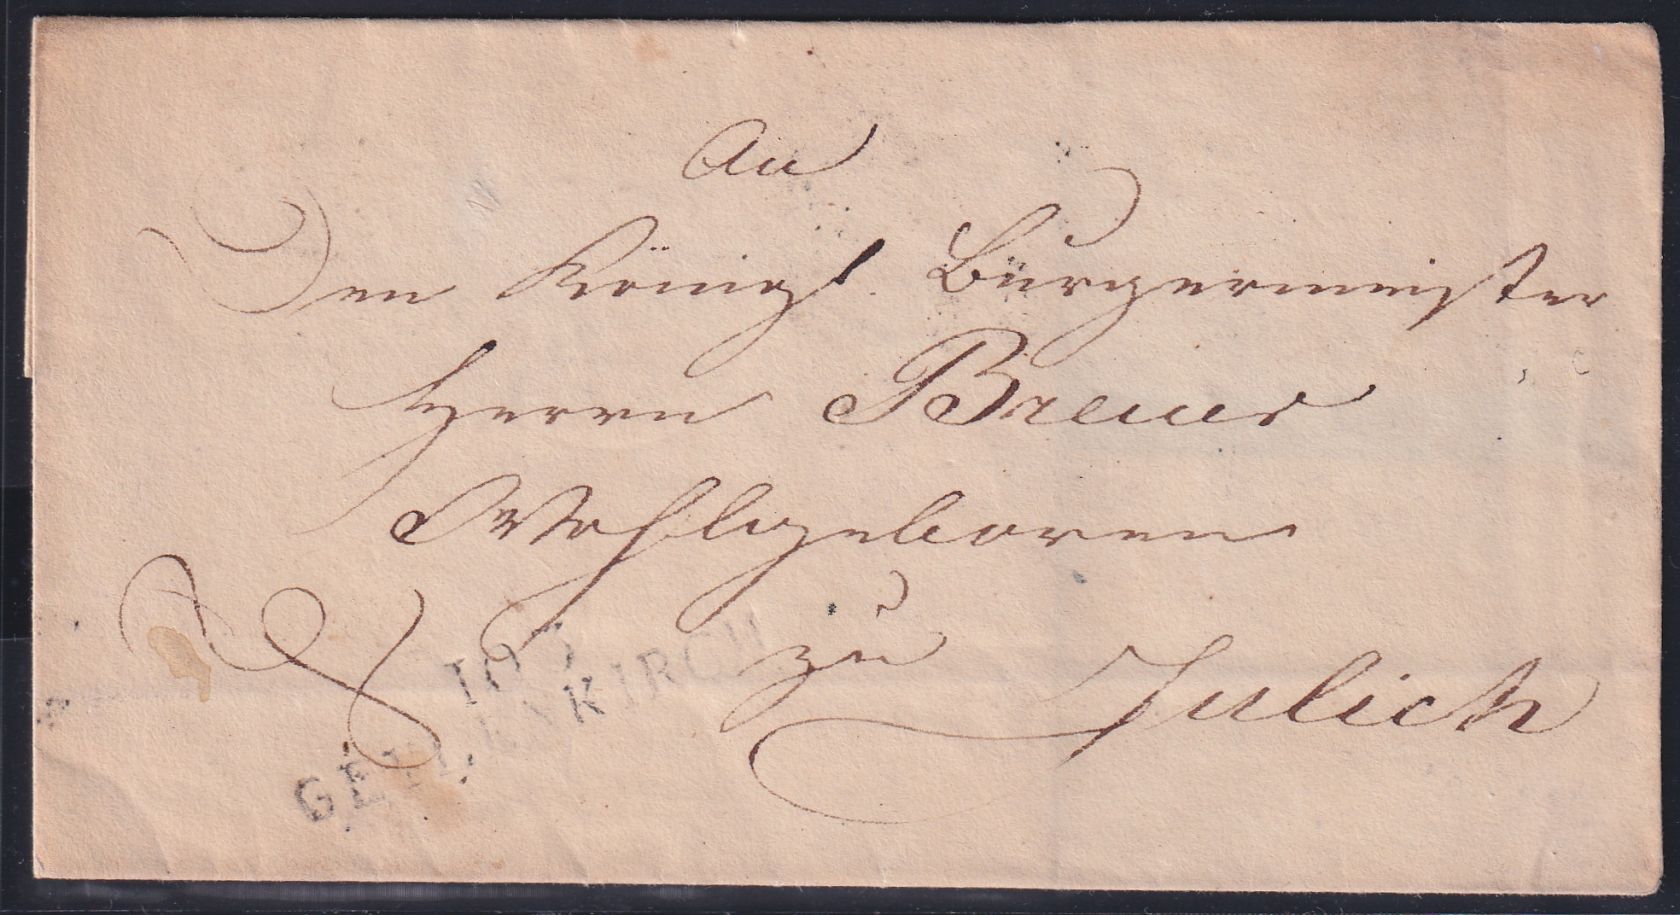 An
Den Königl. Bürgermeister
Herrn Breuer
Wohlgeboren
zu Julich
103
GEILENKIRCH